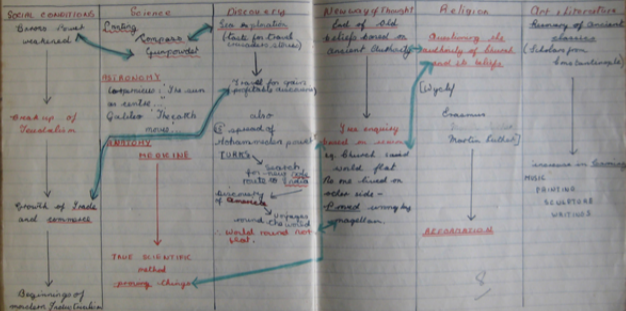 SOCIAL CONDITIONS
Barons
weakened
Break up of
Feudalism
Growth of Trade
and commerce
Beginnings of
modern
Science
Printing
Compass
Gunpowder
ASTRONOMY
Copernicus: "The sun
in centre
Galileo "The earth
moves
ANATOMY
MEDICINE
TRUE SCIENTIFIC
method
proving things
DISCOVERY
Sea exploration
(taste for travel
Travel for gain
profitable discoveries
also
spread of
Mohammedan power
TURKS
Search
for new
route to India
Discovery
of America
Voyages
round
World round not
flat.
New way of Thought
End of Old
beliefs based on
Ancient Authority
True enquiry
based on
eg. Church said
world flat
No one lived on
other side -
Proved wrong by
magellan.
Religion
Questioning the
authority of Church
and its beliefs
[Wyclif
Erasmus
Martin Luther]
REFORMATION
Art & Literature
of Ancient
classics
(Scholars from
Constantinople)
increase in learning
MUSIC
PAINTING
SCULPTORS
WRITERS
8